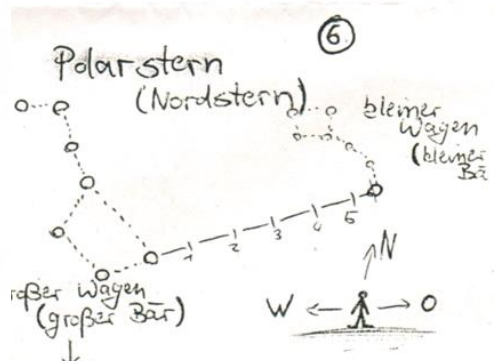 6
Polarstern
(Nordstern)
kleiner
Wagen
(kleiner
Bä
1 2 3 4 5
roßer Wagen
(großer Bär)
N
W O